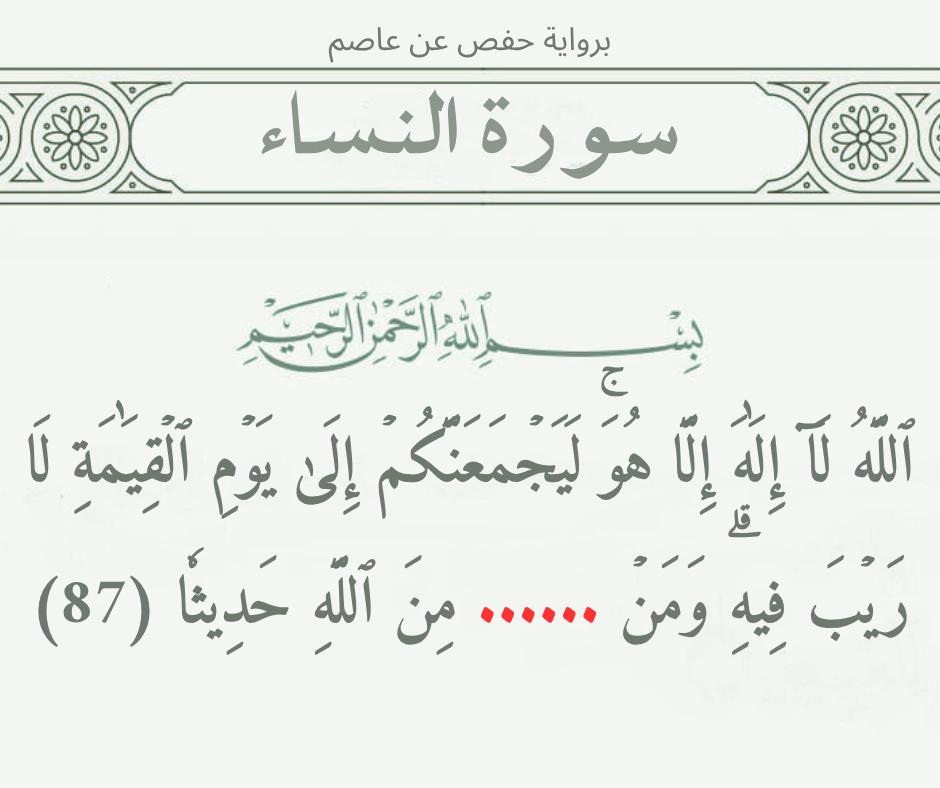 برواية حفص عن عاصم
سورة النساء
بِسْمِ ٱللَّهِ ٱلرَّحْمَٰنِ ٱلرَّحِيمِ
ٱللَّهُ لَآ إِلَٰهَ إِلَّا هُوَۚ لَيَجْمَعَنَّكُمْ إِلَىٰ يَوْمِ ٱلْقِيَٰمَةِ لَا
رَيْبَ فِيهِۗ وَمَنْ ...... مِنَ ٱللَّهِ حَدِيثٗا (87)